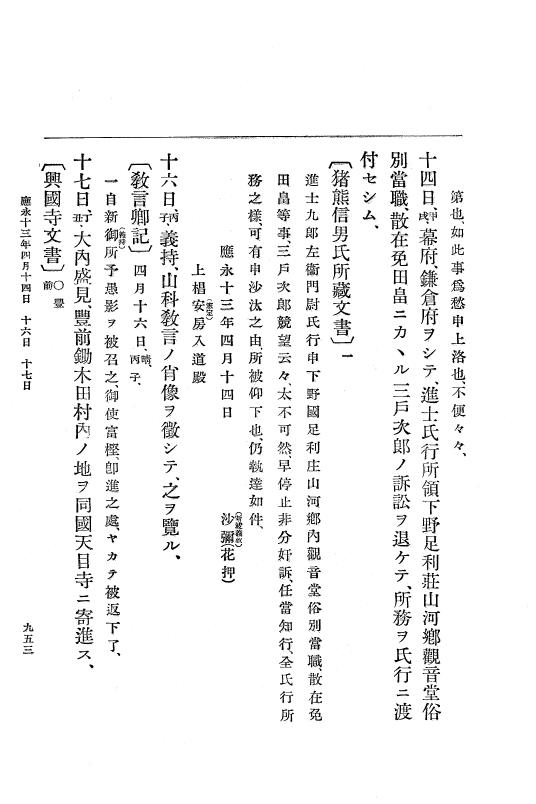 第也、如此事爲愁申上洛也、不便々々、
十四日、甲戌幕府、鎌倉府ヲシテ、進士氏行所領下野足利莊山河鄕觀音堂俗
別當職、散在免田畠ニカヽル三戶次郎ノ訴訟ヲ退ケテ、所務ヲ氏行ニ渡
付セシム、
〔猪熊信男氏所藏文書〕一
進士九郎左衞門尉氏行申下野國足利庄山河鄕內觀音堂俗別當職、散在免
田畠等事、三戶次郎競望云々、太不可然、早停止非分奸訴、任當知行、全氏行所
務之樣可有申沙汰之由、所被仰下也、仍執達如件、
應永十三年四月十四日　沙彌(花押)
上椙安房入道殿
十六日、丙子義持、山科敎言ノ肖像ヲ徵シテ、之ヲ覽ル、
〔敎言卿記〕四月十六日、晴、丙子、
一自新御所(義持)予愚影ヲ被召之、御使富樫、卽進之處、ヤカテ被返下了、
十七日、丁丑大內盛見、豐前鋤木田村內ノ地ヲ同國天目寺ニ寄進ス、
〔興國寺文書〕○豐前
應永十三年四月十四日　十六日　十七日
九五三